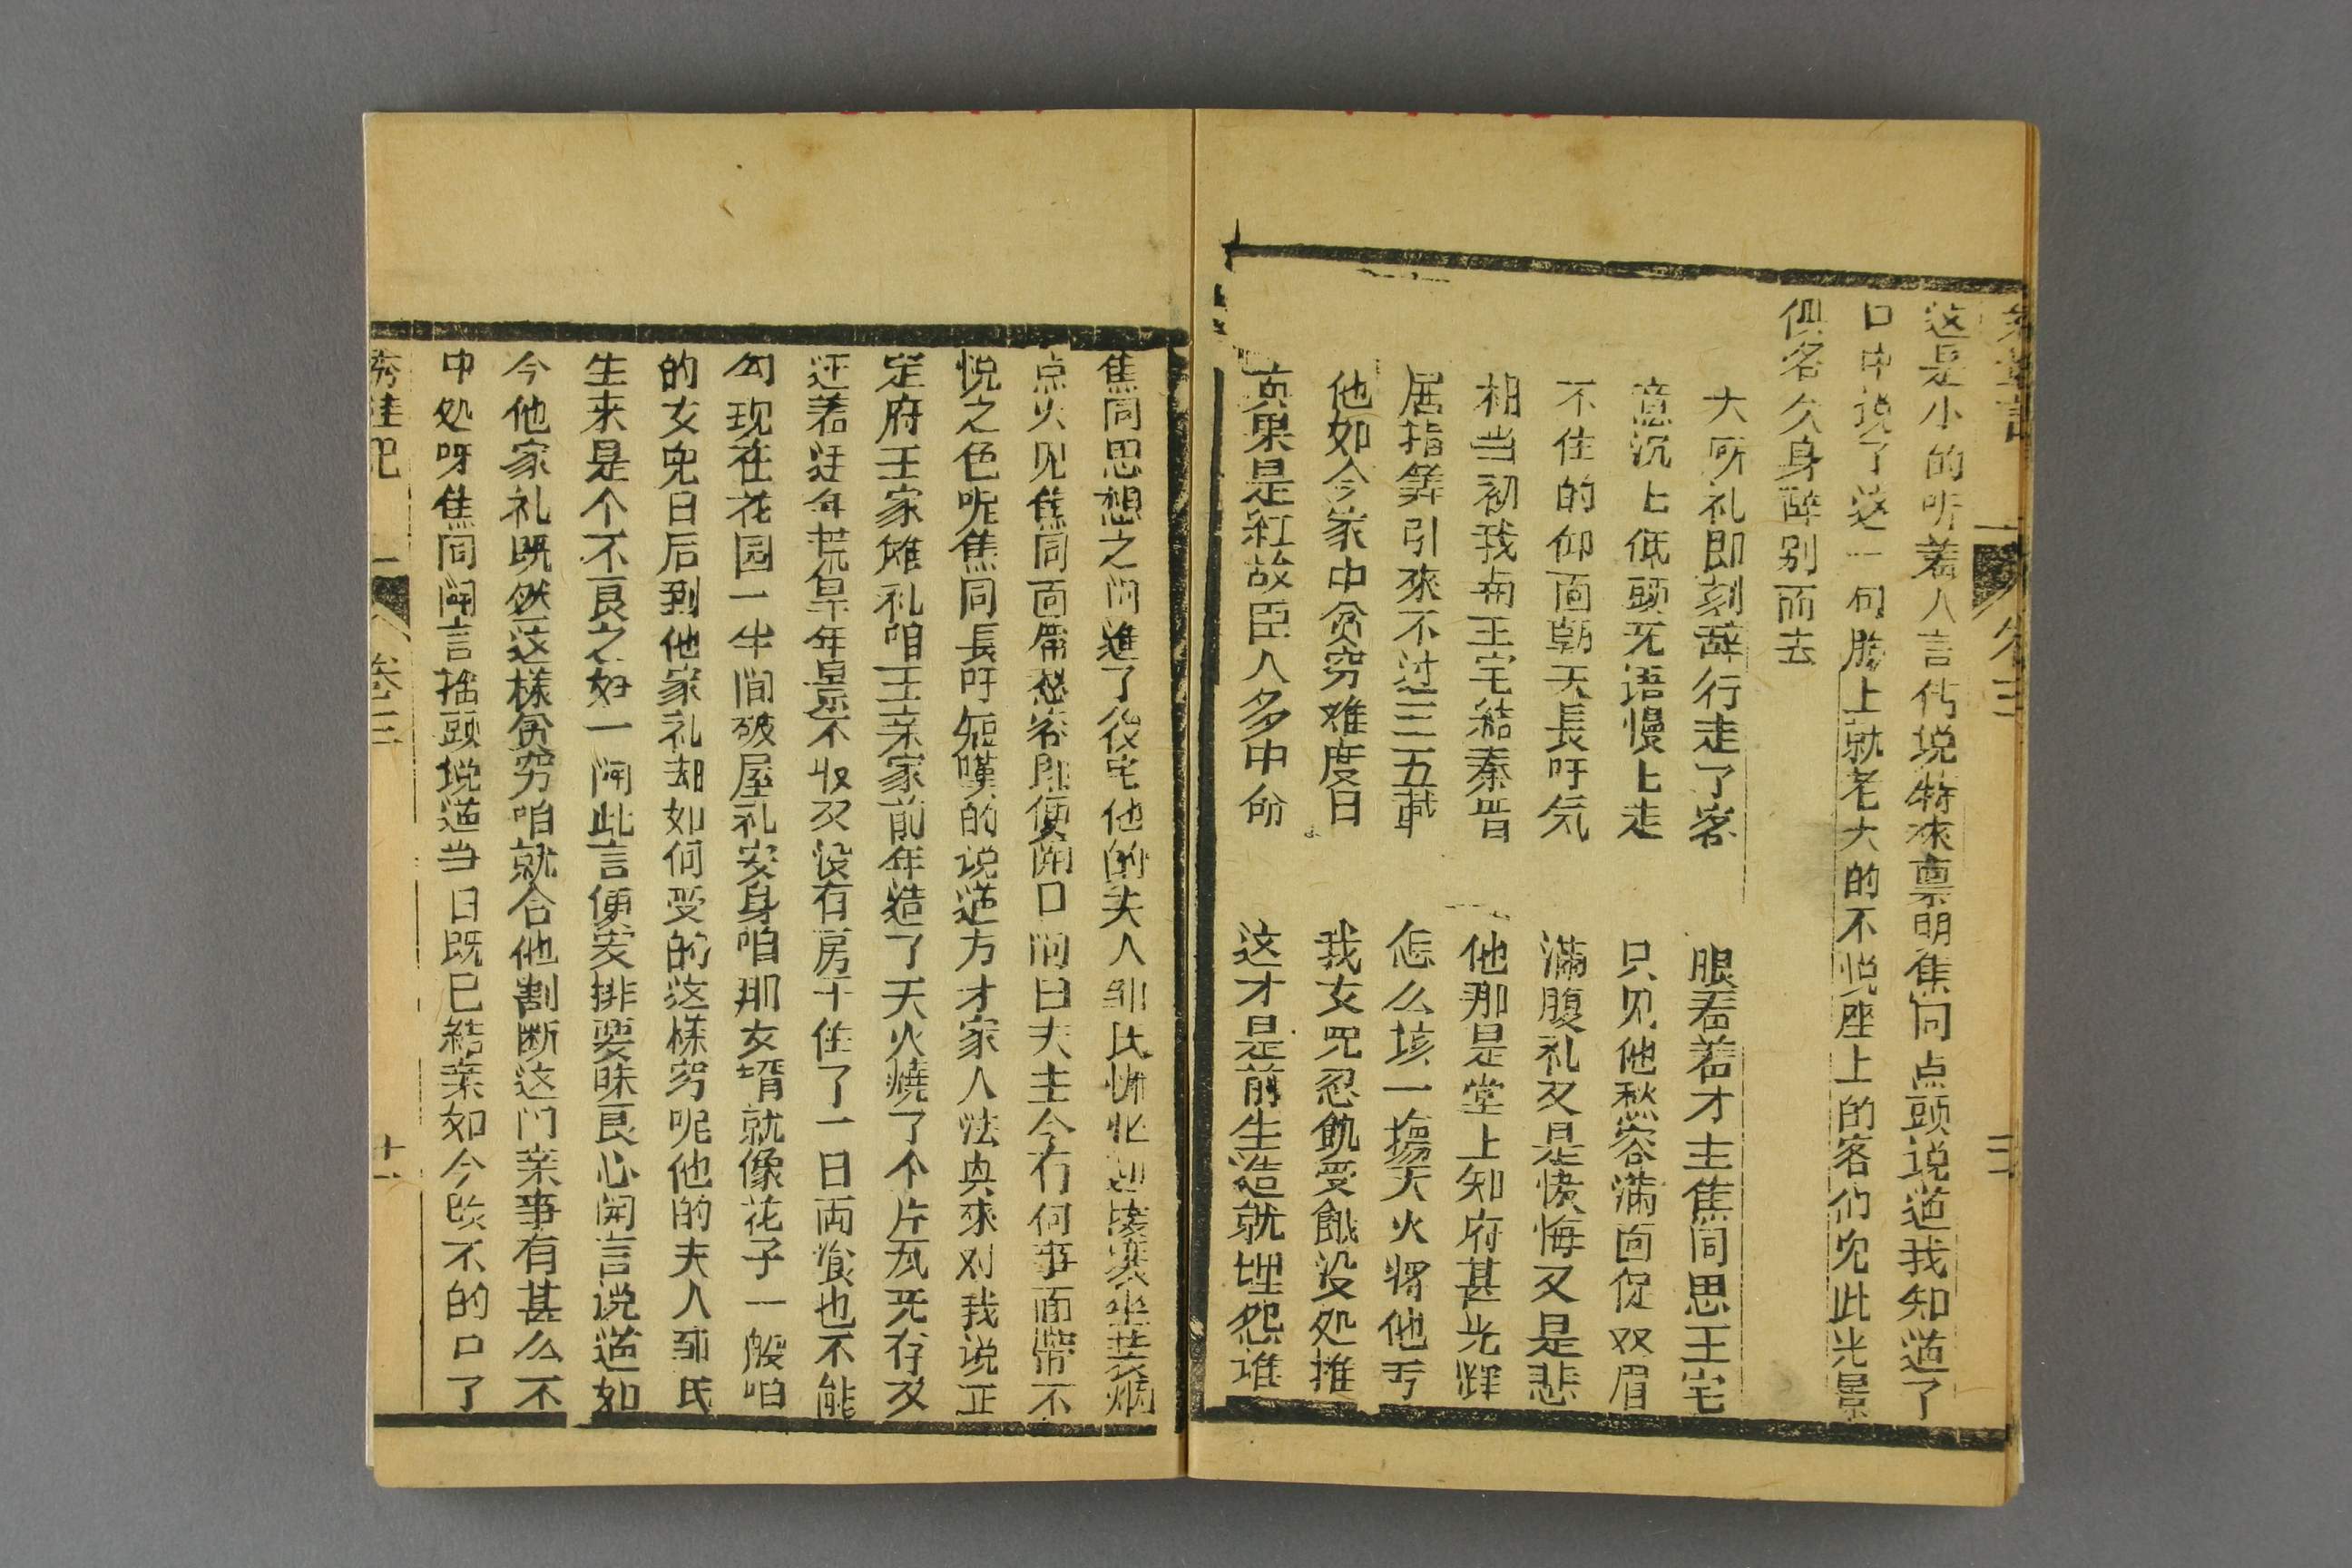 卷三
这是小的听着人言传说特來禀明焦同点頭说道我知道了
口中说了这一句脸上就老大的不悅座上的客们見此光景
俱各欠身辞别而去
大所礼即刻辞行走了客　眼看着才主焦同思王宅
意沉上低頭无语慢上走　只见他愁容满面促双眉
不住的仰面朝天長吁気　满腹礼又是懊悔又是悲
相当初我与王宅結秦晋　他那是堂上知府甚光輝
居指筭引來不过三五載　怎么该一塲天火將他亏
他如今家中贫穷难度日　我女児忍飢受餓没处推
真果是紅故臣人多中命　这才是前生造就埋怨谁
焦同思想之间進了後宅他的夫人邹氏
点火见焦同面带愁容即便開口问曰夫主今有何事面帶不
悅之色呢焦同長吁短嘆的说道方才家人法典來对我说正
定府王家难礼咱王亲家前年造了天火燒了个片瓦无存又
迓着迓年荒旱年景不收又没有房子住了一日両飡也不能
勾现在花园一半间破屋礼安身咱那女壻就像花子一般咱
的女児日后到他家礼却如何受的这樣穷呢他的夫人邹氏
生來是个不良之妇一闻此言便安排要昧良心開言说道如
今他家礼既然这樣貧穷咱就合他割断这门亲事有甚么不
中处呀焦同闻言搖頭说道当日既已結亲如今改不的口了
秀鞋记　卷三　十一